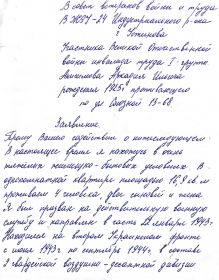 В совет ветеранов войны и труда
В ЖЭУ-24 Индустриального р-на
г. Устинова
Участника Великой Отечественной
войны инвалида труда I группы
Аркадия Ильича
рождения 1925г. проживающего
по ул. 15-68
Заявление
Прошу Вашего содействия о нижеследующем
В настоящее время я нахожусь в очень
тяжелых жилищно-бытовых условиях. В
однокомнатной квартире площадью 16,9 кв.м
проживаем 4 человека двух семей
Я был призван на действительную военную
службу и направлен в часть января 1943г.
Находился на втором Украинском фронте
с июня 1943г по сентябрь 1944г. в составе
воздушно-десантной дивизии